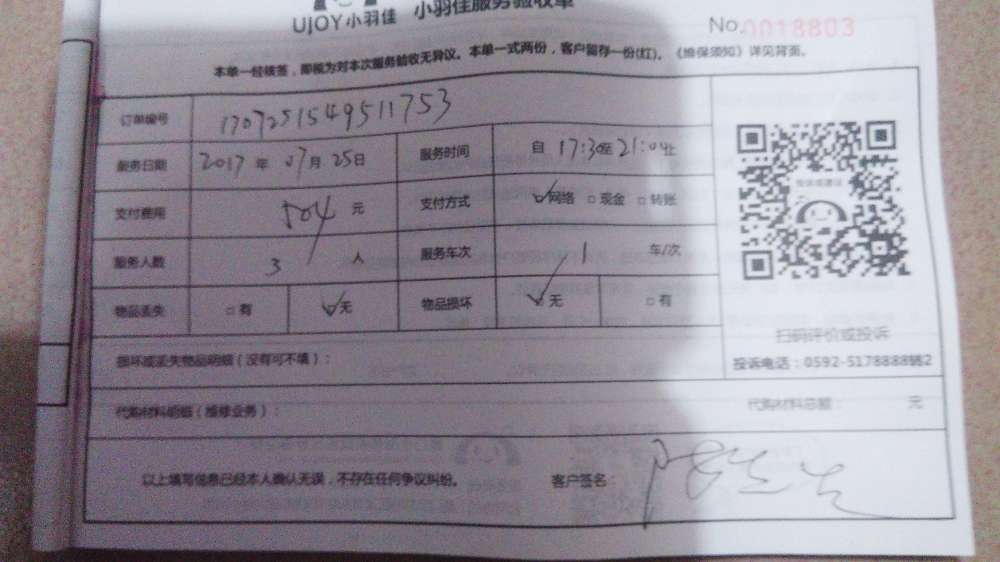 UJOY小羽佳 小羽佳服务验收单
No.0018803
本单一经核签,即视为对本次服务验收无异议。本单一式两份,客户留存一份(红)。《维保须知》详见背面。
订单编号 1707251549511753
服务日期 2017 年 07 月 25 日 服务时间 自 17:30 至 21:04 止
支付费用 504 元 支付方式 ☑网络 □现金 □转账
服务人数 3 人 服务车次 1 车/次
物品丢失 □有 ☑无 物品损坏 ☑无 □有
投诉或建议
扫码评价或投诉
投诉电话:0592-5178888转2
损坏或丢失物品明细(没有可不填):
代购材料明细(维修业务): 代购材料总额: 元
以上填写信息已经本人确认无误,不存在任何争议纠纷。 客户签名: